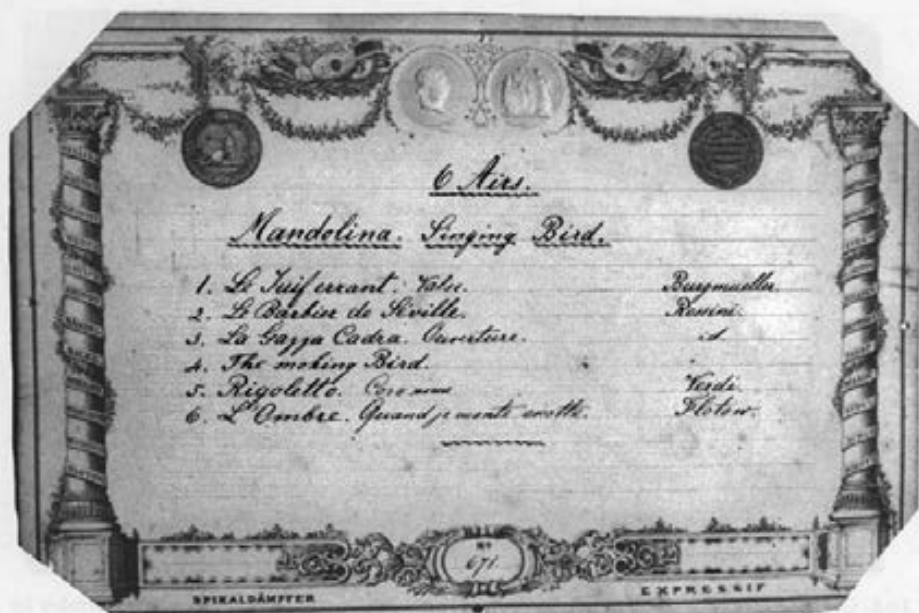 6 Airs.
Mandolina. Singing Bird.
1. Le Juif errant. Valse. Burgmueller.
2. Le Barbier de Séville. Rossini.
3. La Gazza Cadra. Ouverture. d
4. The moking Bird.
5. Rigoletto. Verdi.
6. L'Ombre. Quand je monte Flotow.
No
671
SPIRALDÄMPFER
EXPRESSIF